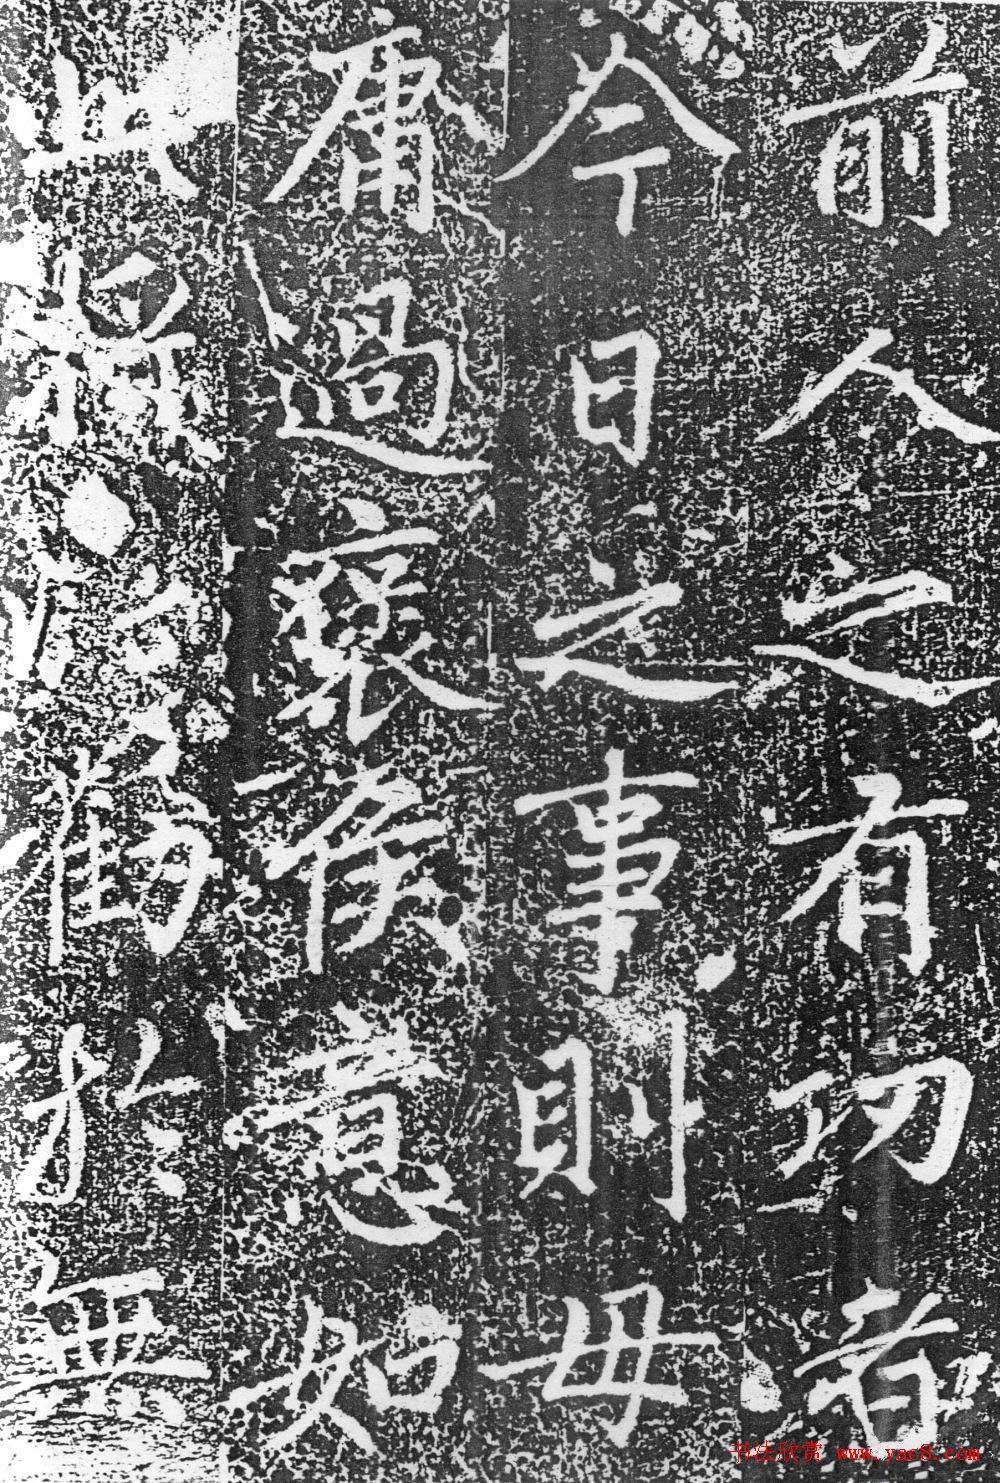 前人之有功者
今日之事則毋
庸過褒侯意如
勸於無
书法欣赏 www.yac8.com